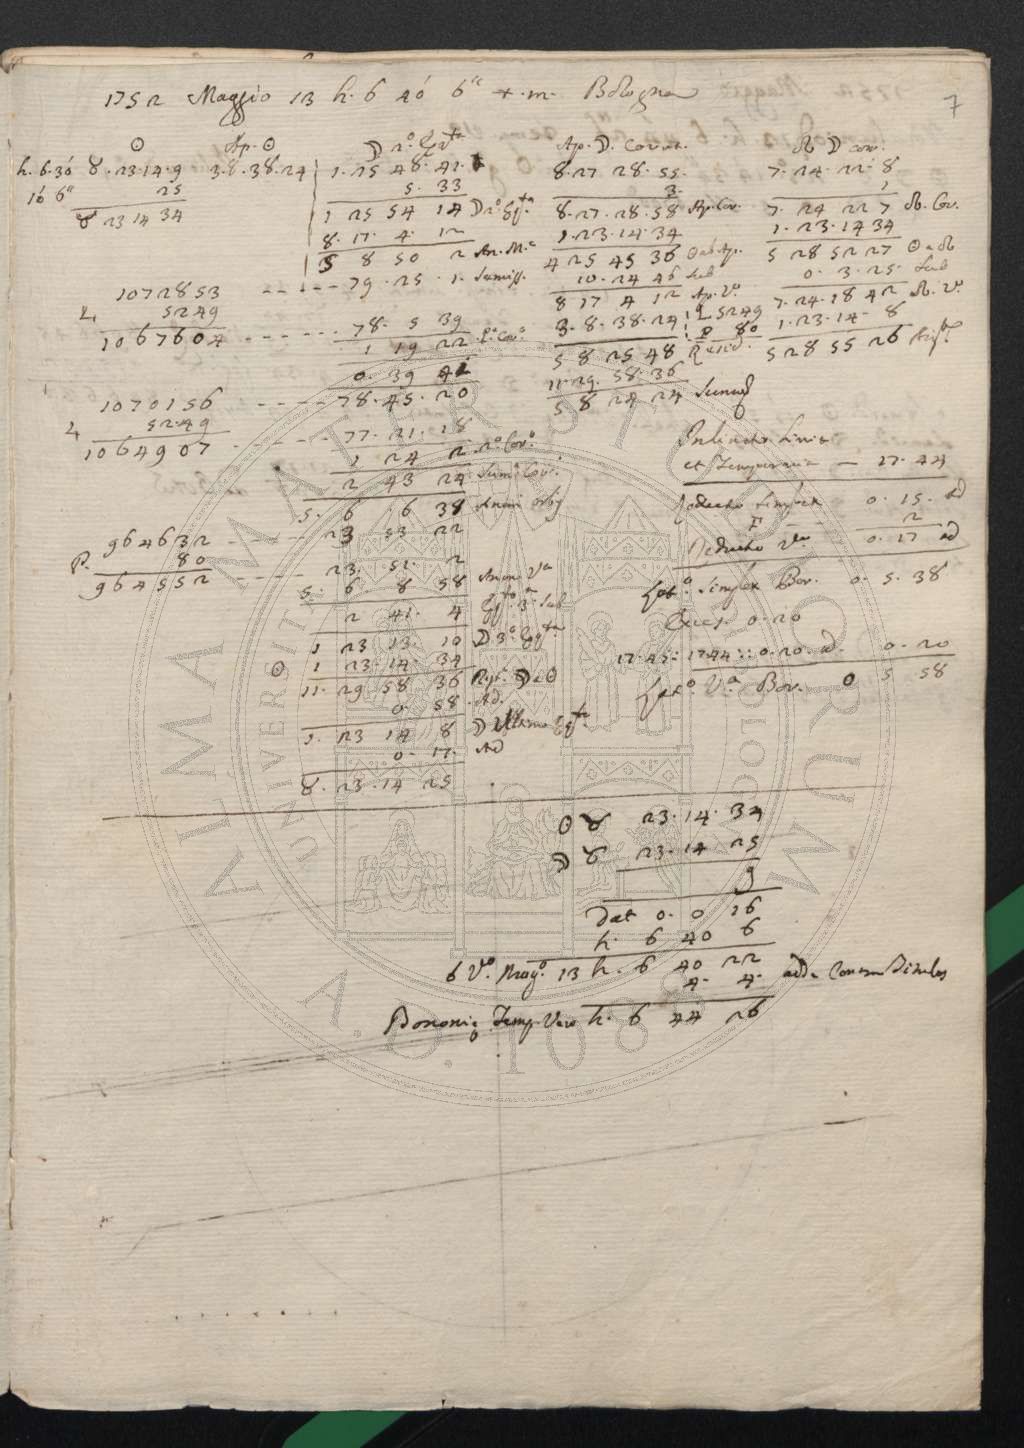 7
1752 Maggio 13 h. 6 40' 6" t. m. Bologna
☉ Ap. ☉ ☽ 2.º Eq.ta Ap. ☽. Corret. ☊ ☽ cor.
h. 6. 30' ♉. 23. 14. 9 3. 8. 38. 24 1. 25 48. 41. 8. 27 28. 55. 7. 24. 22. 8
10' 6" 25 5. 33 3. 1
♉ 23 14 34 1 25 54 14 ☽ 2.º Eq.ta 8. 27. 28. 58 Ap. Cor. 7. 24 22 7 ☊. Cor.
8. 17. 4. 12 1. 23. 14. 34 1. 23. 14 34
5 8 50 2 An. M.a 4 25 45 36 ☉ ab Ap. 5 28 52 27 ☉ a ☊
1072853 79. 25. 1. Semiss. 10. 24 46 Sub 0. 3. 25. Sub
L. 5249 8 17 4 12 Ap. V.º 7. 24. 18 42 ☊. V.º
1067604 78. 5 39 3. 8. 38. 24 L 5249 1. 23. 14. 8
1 19 22 P.º Cor.º 5 8. 25 48 P 80 5 28 55 26
0. 39 41 11. 29. 58. 36
1070156 78. 45. 20 5 8 24 24
L 5249
1064907 77. 21. 18
1 24 2 2.º Cor.º et Temporaria — 17. 44
2 43 24 Sum. Cor. 0. 15. ad
5. 6 6 38 Anom. 2
964632 23 53 22 Reductio V.a 0. 17 ad
P. 80 23. 51. 2
964552 5. 6. 8 58 Anom. V.a Lat.º Simplex Bor. 0. 5. 38
2 41. 4 Sub 0. 20
1 23 13. 10 ☽ 3.º Eq.ta 17. 45 : 17 44 :: 0. 20. ad. 0. 20
☉ 1 23. 14. 34 Lat.º V.a Bor. 0 5 58
11. 29 58 36 ☽ a ☉
0. 58. Ad.
1. 23 14 8 ☽ Ultimo Eq.ta
0. 17. Ad
♉. 23. 14 25
☉ ♉ 23. 14. 34
☽ ♉ 23. 14 25
9
Dat 0. 0 16
h. 6 40 6
6 V.º Mag.º 13 h. 6 40 22
4. 4.
Bononiæ Temp. Vero h. 6 44 26
ALMA MATER STUDIORUM
UNIVERSITÀ DI BOLOGNA
A.D. 1088